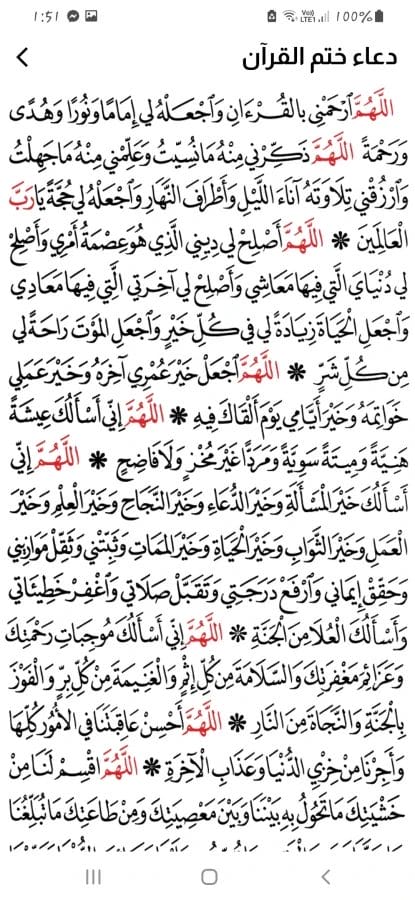 1:51
Vo)) LTE1 100%
دعاء ختم القرآن
اللَّهُمَّ ٱرْحَمْنِي بِالقُرْءَانِ وَٱجْعَلْهُ لِي إِمَامًا وَنُورًا وَهُدًى
وَرَحْمَةً اللَّهُمَّ ذَكِّرْنِي مِنْهُ مَا نُسِّيتُ وَعَلِّمْنِي مِنْهُ مَا جَهِلْتُ
وَٱرْزُقْنِي تِلَاوَتَهُ آنَاءَ اللَّيْلِ وَأَطْرَافَ النَّهَارِ وَٱجْعَلْهُ لِي حُجَّةً يَا رَبَّ
الْعَالَمِينَ * اللَّهُمَّ أَصْلِحْ لِي دِينِي الَّذِي هُوَ عِصْمَةُ أَمْرِي وَأَصْلِحْ
لِي دُنْيَايَ الَّتِي فِيهَا مَعَاشِي وَأَصْلِحْ لِي آخِرَتِي الَّتِي فِيهَا مَعَادِي
وَٱجْعَلِ الْحَيَاةَ زِيَادَةً لِي فِي كُلِّ خَيْرٍ وَٱجْعَلِ الْمَوْتَ رَاحَةً لِي
مِن كُلِّ شَرٍّ * اللَّهُمَّ ٱجْعَلْ خَيْرَ عُمْرِي آخِرَهُ وَخَيْرَ عَمَلِي
خَوَاتِمَهُ وَخَيْرَ أَيَّامِي يَوْمَ أَلْقَاكَ فِيهِ * اللَّهُمَّ إِنِّي أَسْأَلُكَ عِيشَةً
هَنِيَّةً وَمِيتَةً سَوِيَّةً وَمَرَدًّا غَيْرَ مُخْزٍ وَلَا فَاضِحٍ * اللَّهُمَّ إِنِّي
أَسْأَلُكَ خَيْرَ الْمَسْأَلَةِ وَخَيْرَ الدُّعَاءِ وَخَيْرَ النَّجَاحِ وَخَيْرَ الْعِلْمِ وَخَيْرَ
الْعَمَلِ وَخَيْرَ الثَّوَابِ وَخَيْرَ الْحَيَاةِ وَخَيْرَ الْمَمَاتِ وَثَبِّتْنِي وَثَقِّلْ مَوَازِينِي
وَحَقِّقْ إِيمَانِي وَٱرْفَعْ دَرَجَتِي وَتَقَبَّلْ صَلَاتِي وَٱغْفِرْ خَطِيئَاتِي
وَأَسْأَلُكَ الْعُلَا مِنَ الْجَنَّةِ * اللَّهُمَّ إِنِّي أَسْأَلُكَ مُوجِبَاتِ رَحْمَتِكَ
وَعَزَائِمَ مَغْفِرَتِكَ وَالسَّلَامَةَ مِن كُلِّ إِثْمٍ وَالْغَنِيمَةَ مِنْ كُلِّ بِرٍّ وَالْفَوْزَ
بِالْجَنَّةِ وَالنَّجَاةَ مِنَ النَّارِ * اللَّهُمَّ أَحْسِنْ عَاقِبَتَنَا فِي الْأُمُورِ كُلِّهَا
وَأَجِرْنَا مِنْ خِزْيِ الدُّنْيَا وَعَذَابِ الْآخِرَةِ * اللَّهُمَّ اقْسِمْ لَنَا مِنْ
خَشْيَتِكَ مَا تَحُولُ بِهِ بَيْنَنَا وَبَيْنَ مَعْصِيَتِكَ وَمِنْ طَاعَتِكَ مَا تُبَلِّغُنَا